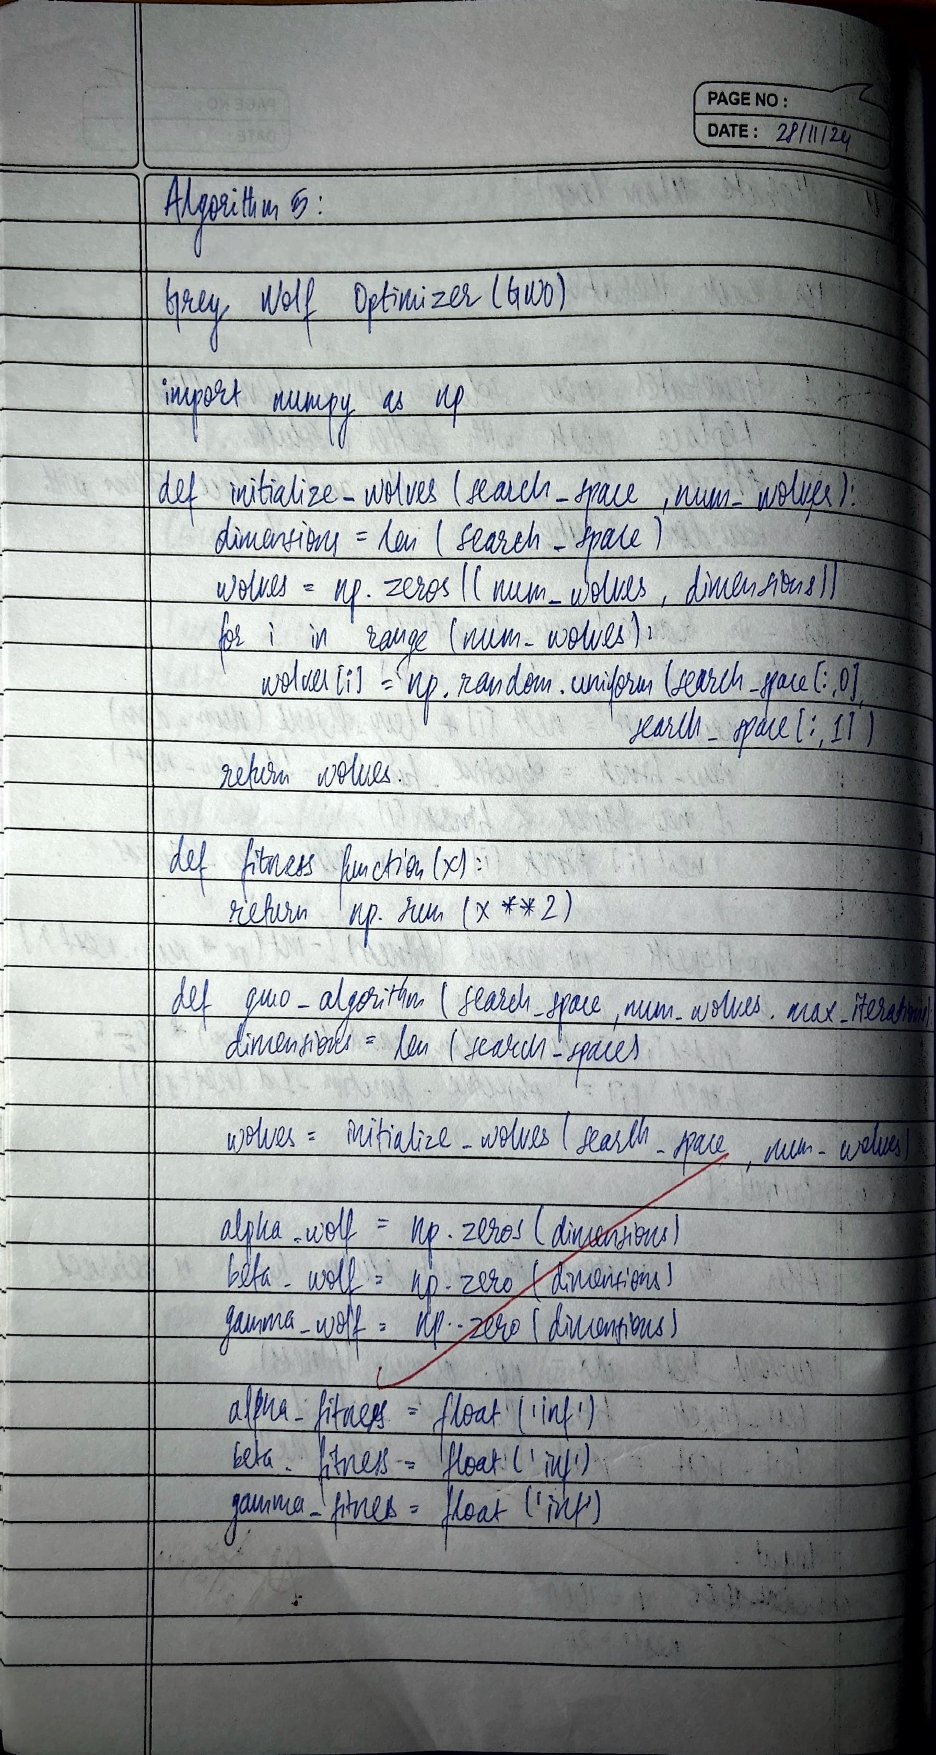 PAGE NO :
DATE : 28/11/24
Algorithm 5 :
Grey Wolf Optimizer (GWO)
import numpy as np
def initialize_wolves (search_space , num_wolves):
dimensions = len ( search_space )
wolves = np. zeros (( num_wolves , dimensions))
for i in range (num_wolves):
wolves[i] = np. random. uniform (search_space[:,0],
search_space[:,1])
return wolves.
def fitness function(x):
return np. sum (x **2)
def gwo_algorithm (search_space, num_wolves. max_iterations)
dimensions = len (search_spaces
wolves = initialize_wolves (search_space , num_wolves)
alpha_wolf = np. zeros (dimensions)
beta_wolf = np. zero (dimensions)
gamma_wolf = np.. zero (dimensions)
alpha_fitness = float ('inf')
beta_ fitness = float ('inf')
gamma_fitnes = float ('inf')